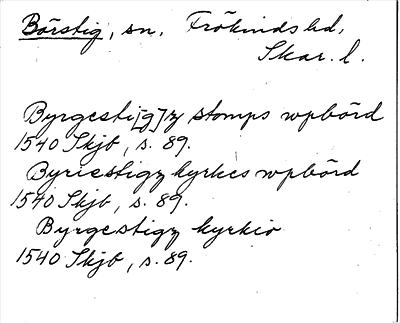 Börstig, sn, Frökinds hd,
Skar. l.
Byrgesti[g]z stomps wpbörd
1540 Skjb, s. 89.
Byriestigz kyrkes wpbörd
1540 Skjb, s. 89.
Byrgestigz kyrkio
1540 Skjb, s. 89.